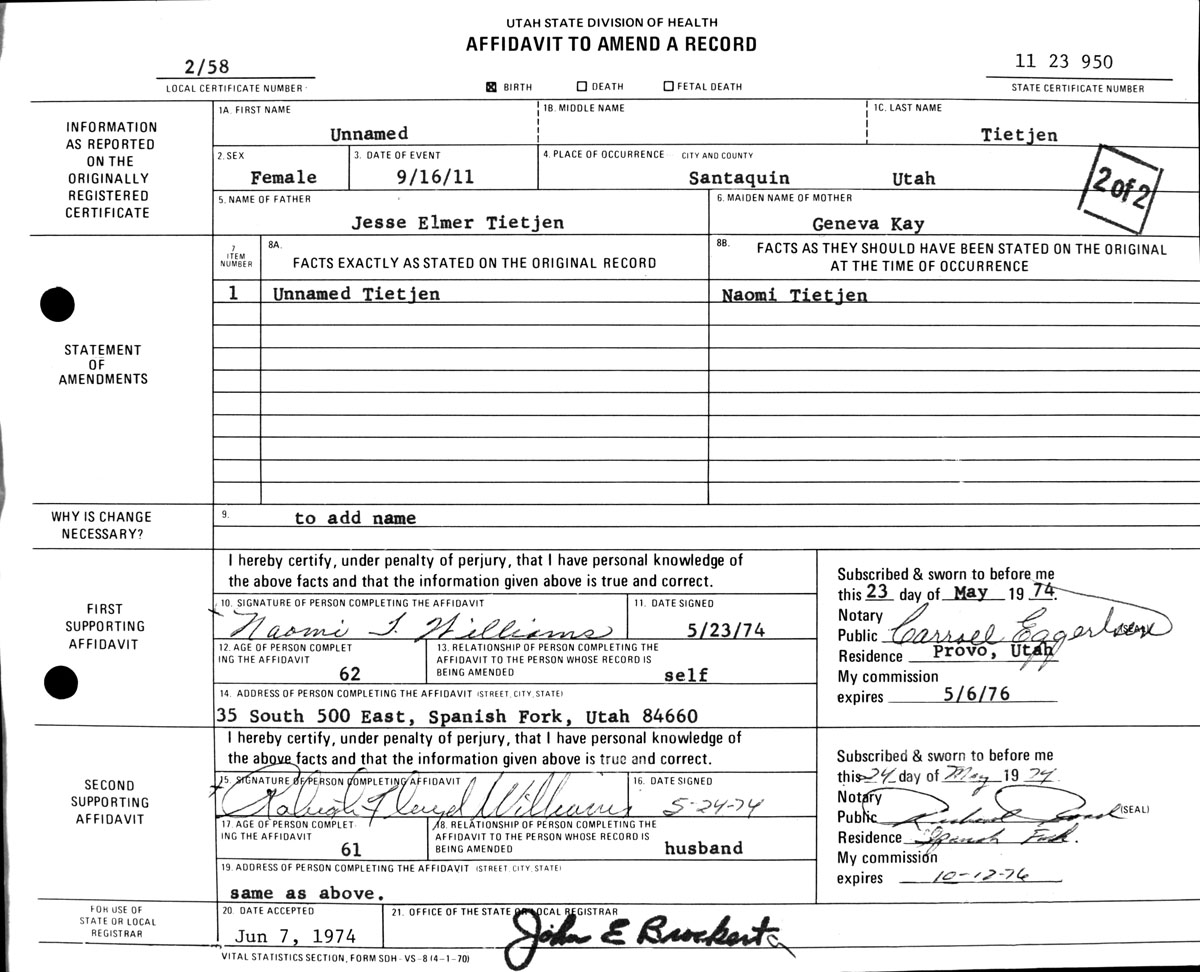 UTAH STATE DIVISION OF HEALTH
AFFIDAVIT TO AMEND A RECORD
2/58
LOCAL CERTIFICATE NUMBER
☒ BIRTH ☐ DEATH ☐ FETAL DEATH
11 23 950
STATE CERTIFICATE NUMBER
INFORMATION
AS REPORTED
ON THE
ORIGINALLY
REGISTERED
CERTIFICATE
1A. FIRST NAME 1B. MIDDLE NAME 1C. LAST NAME
Unnamed Tietjen
2. SEX 3. DATE OF EVENT 4. PLACE OF OCCURRENCE CITY AND COUNTY
Female 9/16/11 Santaquin Utah
2 of 2
5. NAME OF FATHER 6. MAIDEN NAME OF MOTHER
Jesse Elmer Tietjen Geneva Kay
STATEMENT
OF
AMENDMENTS
7
ITEM
NUMBER
8A.
FACTS EXACTLY AS STATED ON THE ORIGINAL RECORD
8B. FACTS AS THEY SHOULD HAVE BEEN STATED ON THE ORIGINAL
AT THE TIME OF OCCURRENCE
1 Unnamed Tietjen Naomi Tietjen
WHY IS CHANGE
NECESSARY?
9. to add name
FIRST
SUPPORTING
AFFIDAVIT
I hereby certify, under penalty of perjury, that I have personal knowledge of
the above facts and that the information given above is true and correct.
10. SIGNATURE OF PERSON COMPLETING THE AFFIDAVIT 11. DATE SIGNED
Naomi T. Williams 5/23/74
12. AGE OF PERSON COMPLET
ING THE AFFIDAVIT
62
13. RELATIONSHIP OF PERSON COMPLETING THE
AFFIDAVIT TO THE PERSON WHOSE RECORD IS
BEING AMENDED self
14. ADDRESS OF PERSON COMPLETING THE AFFIDAVIT (STREET, CITY, STATE)
35 South 500 East, Spanish Fork, Utah 84660
Subscribed & sworn to before me
this 23 day of May 19 74.
Notary
Public Carroll (SEAL)
Residence Provo, Utah
My commission
expires 5/6/76
SECOND
SUPPORTING
AFFIDAVIT
I hereby certify, under penalty of perjury, that I have personal knowledge of
the above facts and that the information given above is true and correct.
15. SIGNATURE OF PERSON COMPLETING AFFIDAVIT 16. DATE SIGNED
Raleigh Floyd Williams 5-24-74
17. AGE OF PERSON COMPLET-
ING THE AFFIDAVIT
61
18. RELATIONSHIP OF PERSON COMPLETING THE
AFFIDAVIT TO THE PERSON WHOSE RECORD IS
BEING AMENDED husband
19. ADDRESS OF PERSON COMPLETING THE AFFIDAVIT (STREET, CITY, STATE)
same as above.
Subscribed & sworn to before me
this 24 day of May 19 74.
Notary
Public (SEAL)
Residence Spanish Fork.
My commission
expires 10-12-76
FOR USE OF
STATE OR LOCAL
REGISTRAR
20. DATE ACCEPTED 21. OFFICE OF THE STATE OR LOCAL REGISTRAR
Jun 7, 1974 John E Brockert
VITAL STATISTICS SECTION, FORM SDH-VS-8 (4-1-70)